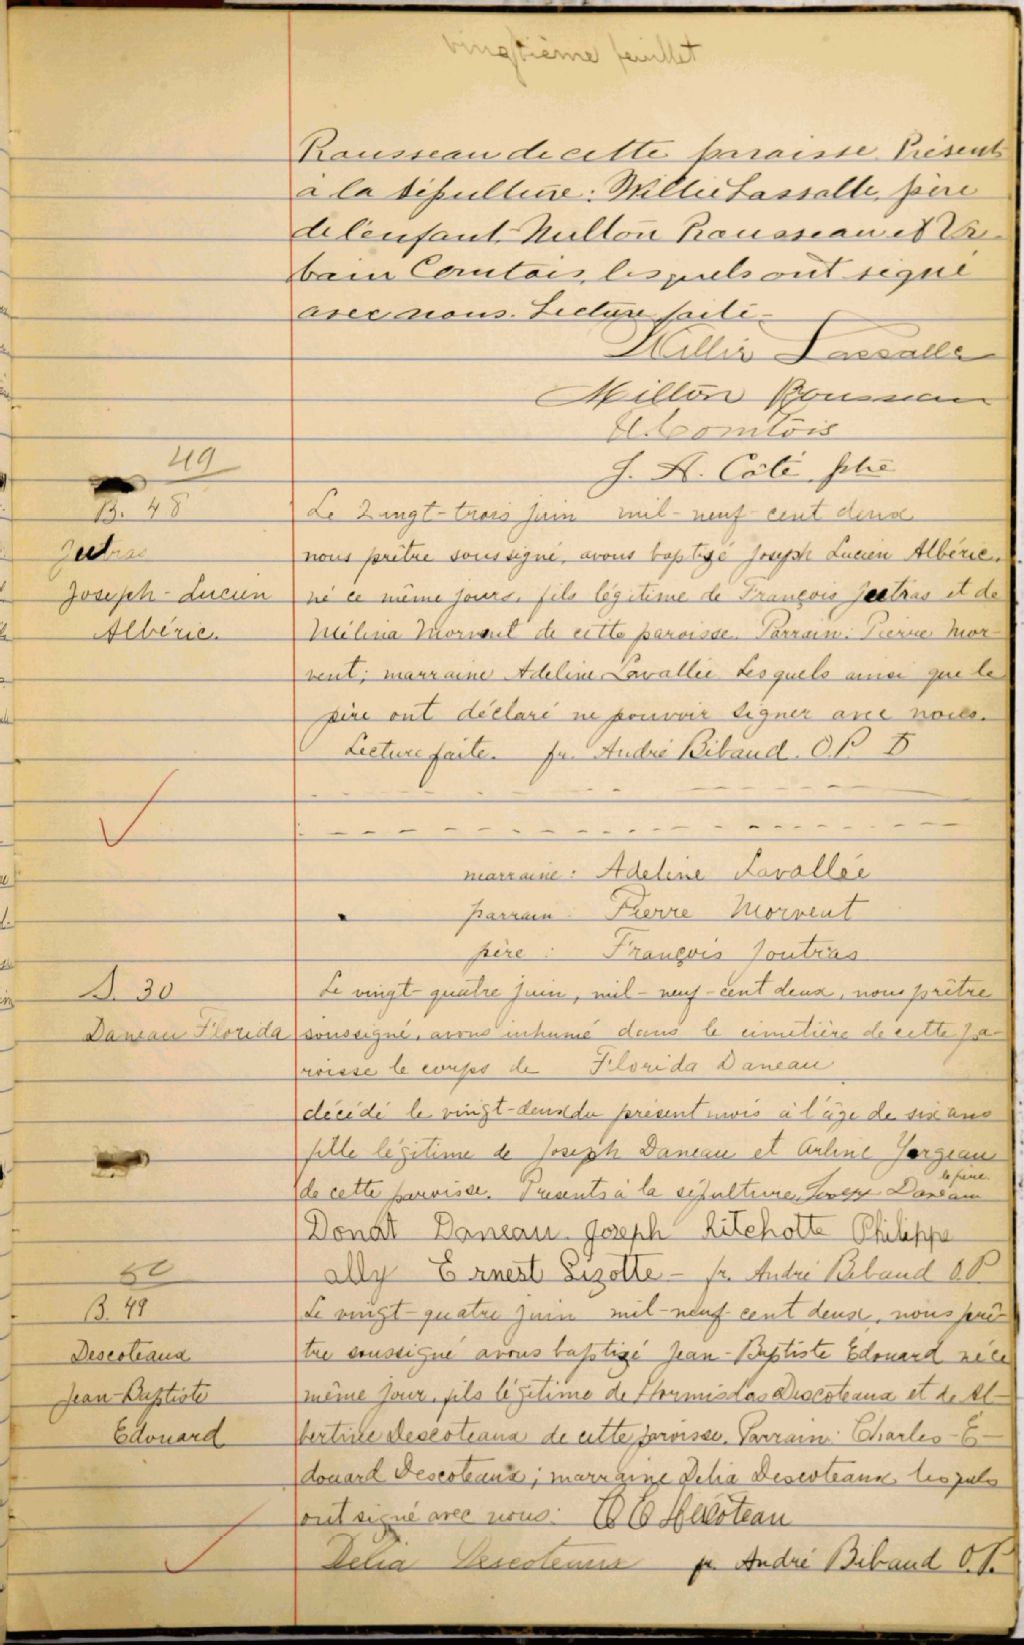 vingtième feuillet
Rousseau de cette paroisse. Présents
à la sépulture: Willie Lassalle, père
de l'enfant, Milton Rousseau et Ur-
bain Comtois, lesquels ont signé
avec nous. Lecture faite -
Willie Lassalle
Milton Rousseau
U. Comtois
J. A. Côté ptre
49
B. 48
Jutras
Joseph-Lucien
Albéric.
Le Vingt-trois juin mil-neuf-cent deux
nous prêtre soussigné, avons baptisé Joseph Lucien Albéric,
né ce même jours, fils légitime de François Jutras et de
Mélina Morvent de cette paroisse. Parrain: Pierre Mor-
vent; marraine Adeline Lavallée Lesquels ainsi que le
père ont déclaré ne pouvoir signer avec nous.
Lecture faite. fr. André Bibaud. O.P.
marraine: Adeline Lavallée
parrain: Pierre Morvent
père: François Joutras
S. 30
Daneau Florida
Le vingt-quatre juin, mil-neuf-cent deux, nous prêtre
soussigné, avons inhumé dans le cimetière de cette pa-
roisse le corps de Florida Daneau
décédé le vingt-deux du présent mois à l'âge de six ans
fille légitime de Joseph Daneau et Arline Yergeau
le père
de cette paroisse. Presents à la sépulture, Josep Daneau
Donat Daneau. Joseph Ritchotte Philippe
ally Ernest Lizotte - fr. André Bibaud O.P.
50
B. 49
Descoteaux
Jean-Baptiste
Edouard
Le vingt-quatre juin mil-neuf-cent deux, nous prê-
tre soussigné avons baptisé Jean-Baptiste Édouard né ce
même jour, fils légitime de Hormisdas Descoteaux et de Al-
bertine Descoteaux de cette paroisse. Parrain: Charles-É-
douard Descoteaux; marraine Delia Descoteaux lesquels
ont signé avec nous: C E Descôteau
Délia Descoteaux fr. André Bibaud O.P.